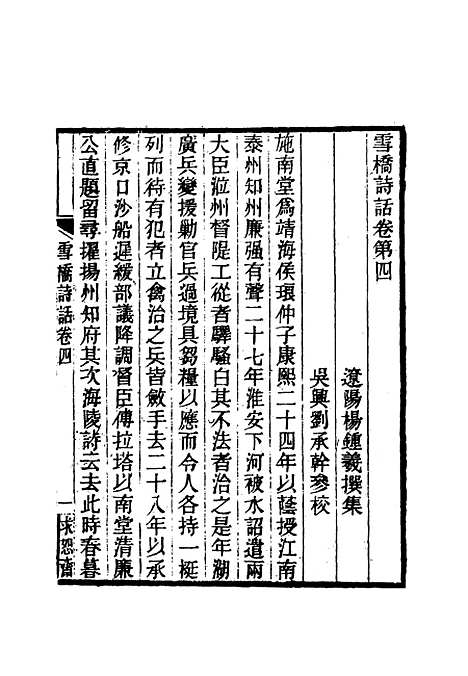 雪橋詩話卷第四
遼陽楊鍾羲撰集
吳興劉承幹參校
施南堂爲靖海侯琅仲子康熙二十四年以蔭授江南
泰州知州廉强有聲二十七年淮安下河被水詔遣兩
大臣涖州督隄工從者驛騷白其不法者治之是年湖
廣兵變援勦官兵過境具芻糧以應而令人各持一梃
列而待有犯者立禽治之兵皆斂手去二十八年以承
修京口沙船遲緩部議降調督臣傅拉塔以南堂清廉
公直題留尋擢揚州知府其次海陵詩云去此時春暮
雪橋詩話卷四
一
求恕齋